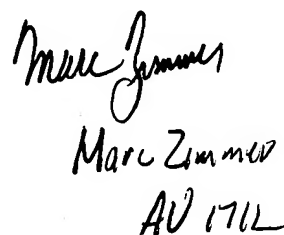 Marc Zimmer
Marc Zimmer
AU 1712